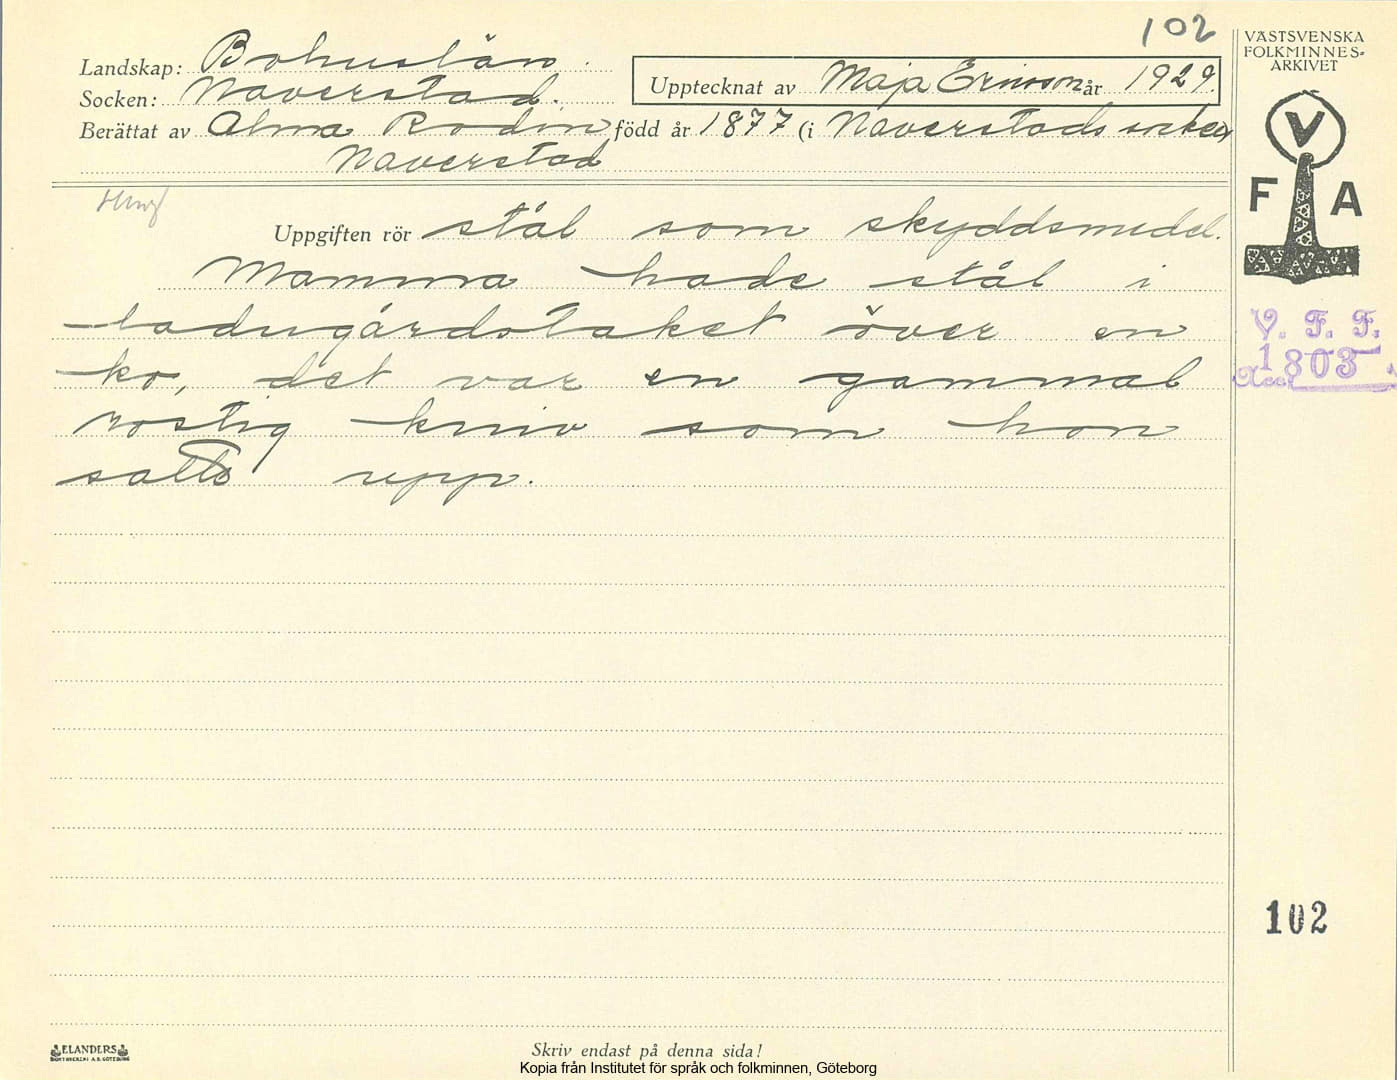 102
Landskap: Bohuslän.
Socken: Naverstad.
Upptecknat av Maja Ericsson år 1929.
Berättat av Alma Rodin, född år 1877 (i Naverstads socken)
Naverstad
Uppgiften rör stål som skyddsmedel.
Mamma hade stål i
ladugårdstaket över en
ko, det var en gammal
rostig kniv som hon
satte upp.
VÄSTSVENSKA
FOLKMINNES-
ARKIVET
V
F A
V. F. F.
1803
Acc.
102
ELANDERS
BOKTRYCKERI A.B. GÖTEBORG
Skriv endast på denna sida!
Kopia från Institutet för språk och folkminnen, Göteborg